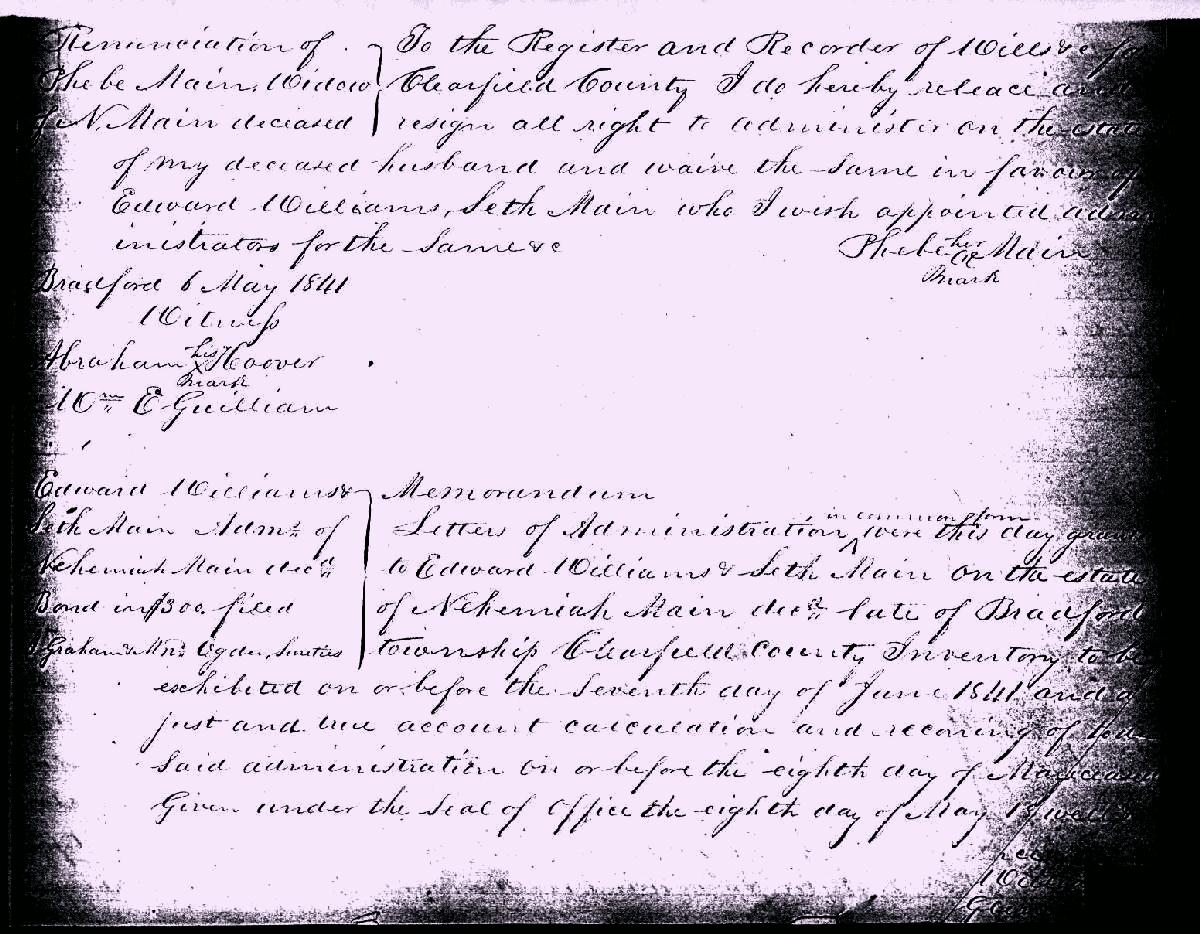 Renunciation of
Phebe Main, Widow
of N. Main deceased
To the Register and Recorder of Wills &c for
Clearfield County I do hereby releace and
resign all right to administer on the estate
of my deceased husband and waive the same in favour of
Edward Williams, Seth Main who I wish appointed adm
inistrators for the same &c
Phebe her Main
mark
Bradford 6 May 1841
Witness
Abraham his x Hoover
mark
Wm E Guilliam
Edward Williams &
Seth Main Admrs of
Nehemiah Main decd
Bond in $300 filed
Graham & Wm Ogden, Sureties
Memorandum
in common form
Letters of Administration ^ were this day gran
to Edward Williams & Seth Main on the estate
of Nehemiah Main decd late of Bradford
township Clearfield County Inventory to be
exhibited on or before the Seventh day of June 1841 and a
just and true account calculation and reconing of
said administration on or before the eighth day of May
Given under the Seal of Office the eighth day of May 18